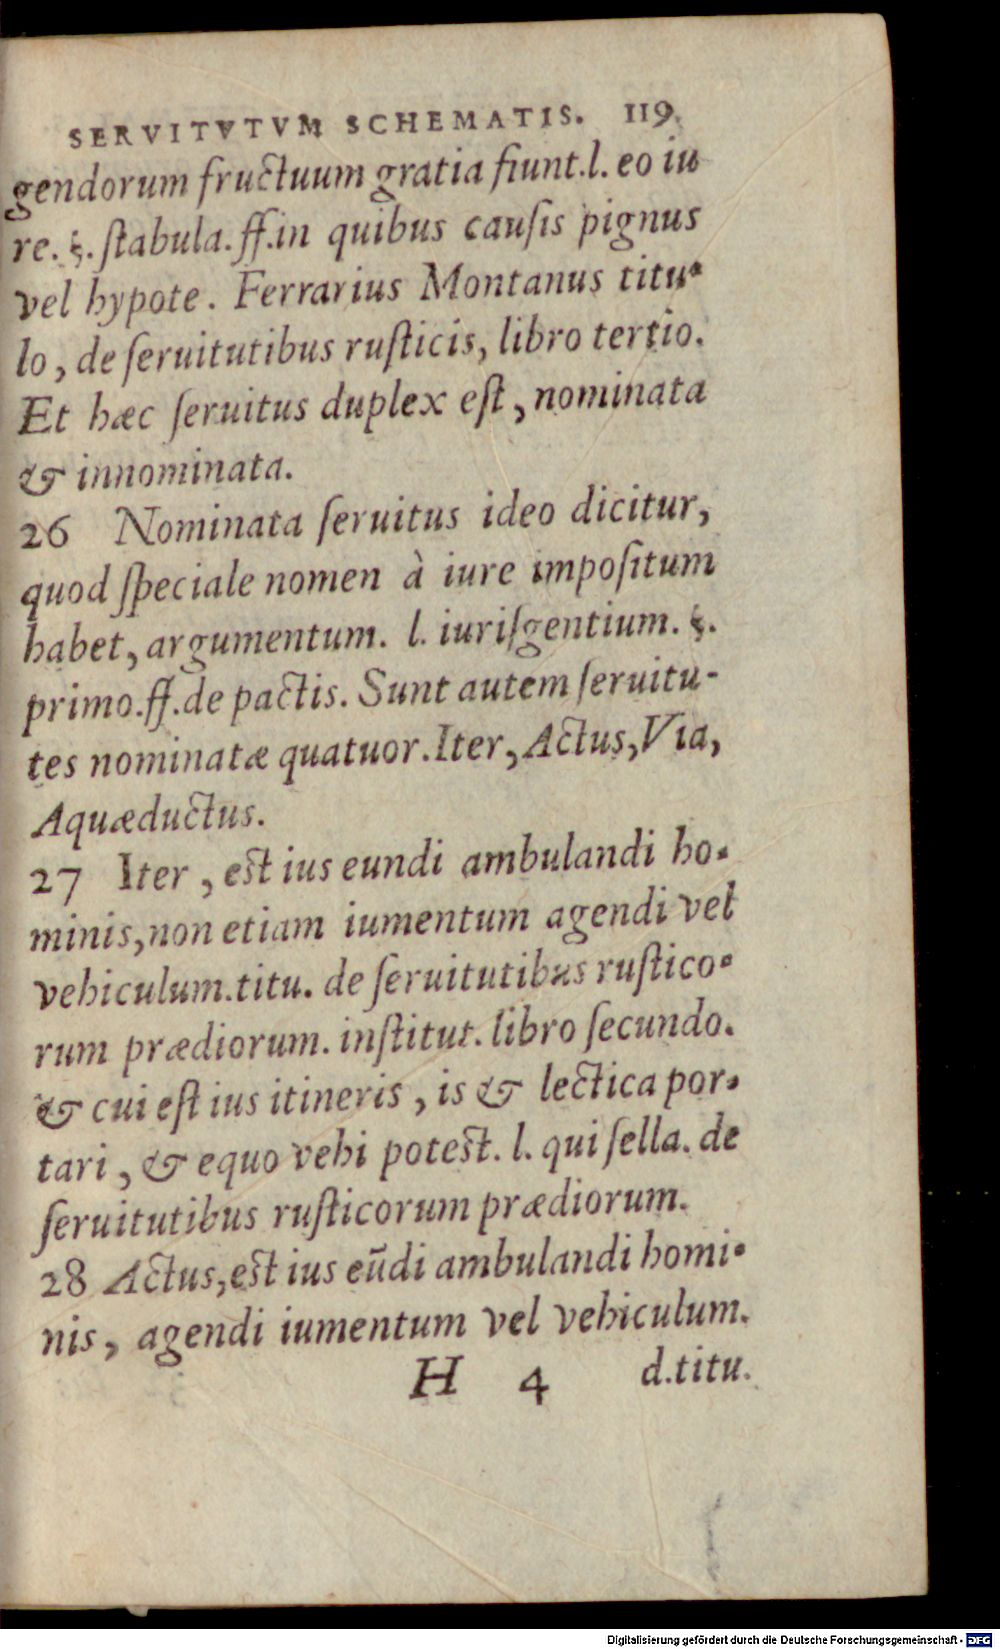 SERVITVTVM SCHEMATIS. 119.
gendorum fructuum gratia fiunt.l. eo iu
re. §. ſtabula. ff.in quibus cauſis pignus
vel hypote. Ferrarius Montanus titu-
lo, de ſeruitutibus ruſticis, libro tertio.
Et hæc ſeruitus duplex eſt, nominata
& innominata.
26 Nominata ſeruitus ideo dicitur,
quod ſpeciale nomen à iure impoſitum
habet, argumentum. l. iuriſgentium. §.
primo.ff.de pactis. Sunt autem ſeruitu-
tes nominatæ quatuor. Iter, Actus, Via,
Aquæductus.
27 Iter, eſt ius eundi ambulandi ho-
minis, non etiam iumentum agendi vel
vehiculum.titu. de ſeruitutibus ruſtico-
rum prædiorum. inſtitut. libro ſecundo.
& cui eſt ius itineris, is & lectica por-
tari, & equo vehi poteſt. l. qui ſella. de
ſeruitutibus ruſticorum prædiorum.
28 Actus, eſt ius eūdi ambulandi homi-
nis, agendi iumentum vel vehiculum.
H 4 d.titu.
Digitalisierung gefördert durch die Deutsche Forschungsgemeinschaft - DFG